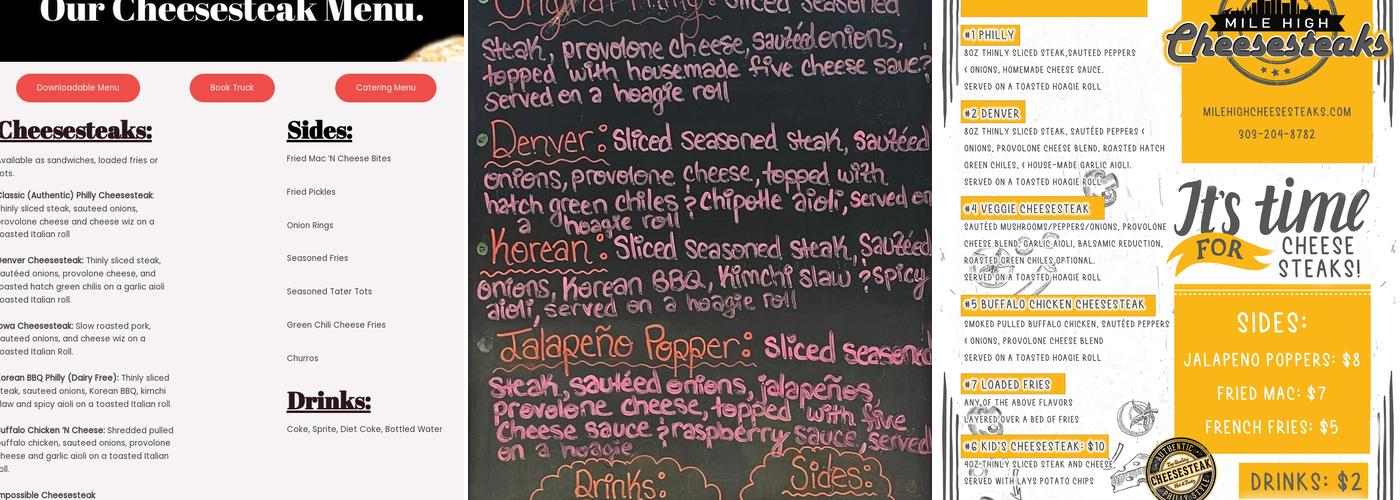 Our Cheesesteak Menu.
Downloadable Menu
Book Truck
Catering Menu
Cheesesteaks:
Available as sandwiches, loaded fries or
tots.
Classic (Authentic) Philly Cheesesteak:
Thinly sliced steak, sauteed onions,
provolone cheese and cheese wiz on a
toasted Italian roll
Denver Cheesesteak: Thinly sliced steak,
sautéed onions, provolone cheese, and
roasted hatch green chilis on a garlic aioli
toasted Italian roll.
Iowa Cheesesteak: Slow roasted pork,
sauteed onions, and cheese wiz on a
toasted Italian Roll.
Korean BBQ Philly (Dairy Free): Thinly sliced
steak, sauteed onions, Korean BBQ, kimchi
slaw and spicy aioli on a toasted Italian roll.
Buffalo Chicken 'N Cheese: Shredded pulled
buffalo chicken, sauteed onions, provolone
cheese and garlic aioli on a toasted Italian
roll.
Impossible Cheesesteak
Sides:
Fried Mac 'N Cheese Bites
Fried Pickles
Onion Rings
Seasoned Fries
Seasoned Tater Tots
Green Chili Cheese Fries
Churros
Drinks:
Coke, Sprite, Diet Coke, Bottled Water
Original Philly: Sliced seasoned
steak, provolone cheese, sautéed onions,
topped with housemade five cheese sauce?
served on a hoagie roll
Denver: Sliced seasoned steak, sautéed
onions, provolone cheese, topped with
hatch green chiles ? chipotle aioli, served on
a hoagie roll
Korean: Sliced seasoned steak, Sautéed
onions, Korean BBQ, Kimchi slaw ? Spicy
aioli, served on a hoagie roll
Jalapeño Popper: Sliced seasoned
Steak, sautéed onions, jalapeños,
provolone cheese, topped with five
Cheese sauce ? raspberry sauce, served
on a hoagie
Drinks:
Sides:
#1 PHILLY
8OZ THINLY SLICED STEAK, SAUTEED PEPPERS
& ONIONS, HOMEMADE CHEESE SAUCE.
SERVED ON A TOASTED HOAGIE ROLL
#2 DENVER
8OZ THINLY SLICED STEAK, SAUTÉED PEPPERS &
ONIONS, PROVOLONE CHEESE BLEND, ROASTED HATCH
GREEN CHILES, & HOUSE-MADE GARLIC AIOLI.
SERVED ON A TOASTED HOAGIE ROLL
#4 VEGGIE CHEESESTEAK
SAUTÉED MUSHROOMS/PEPPERS/ONIONS, PROVOLONE
CHEESE BLEND, GARLIC AIOLI, BALSAMIC REDUCTION,
ROASTED GREEN CHILES OPTIONAL.
SERVED ON A TOASTED HOAGIE ROLL
#5 BUFFALO CHICKEN CHEESESTEAK
SMOKED PULLED BUFFALO CHICKEN, SAUTÉED PEPPERS
& ONIONS, PROVOLONE CHEESE BLEND
SERVED ON A TOASTED HOAGIE ROLL
#7 LOADED FRIES
ANY OF THE ABOVE FLAVORS
LAYERED OVER A BED OF FRIES
#6 KID'S CHEESESTEAK: $10
4OZ THINLY SLICED STEAK AND CHEESE,
SERVED WITH LAYS POTATO CHIPS
MILE HIGH
Cheesesteaks
MILEHIGHCHEESESTEAKS.COM
303-204-8782
It's time
FOR
CHEESE
STEAKS!
SIDES:
JALAPENO POPPERS: $8
FRIED MAC: $7
FRENCH FRIES: $5
DRINKS: $2
AUTHENTIC
CHEESESTEAK
PHILLY STYLE